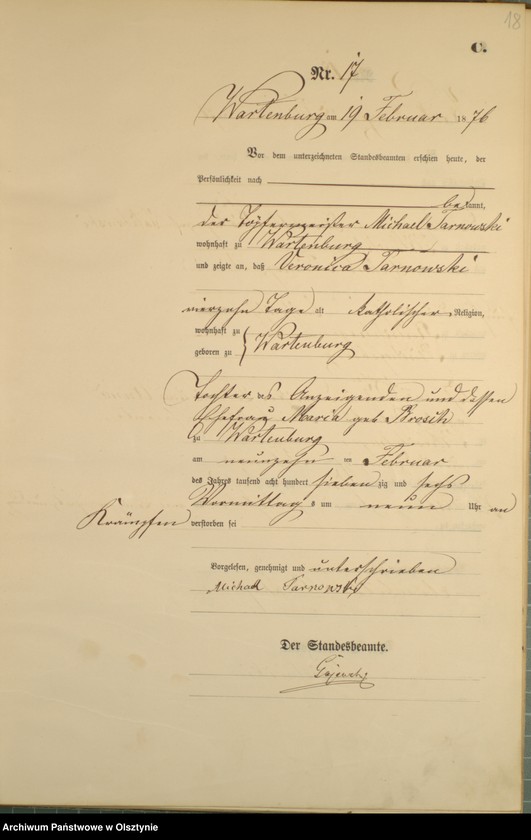 18
C.
Nr. 17
Wartenburg am 19 Februar 1876
Vor dem unterzeichneten Standesbeamten erschien heute, der
Persönlichkeit nach
bekannt,
der Töpfermeister Michael Tarnowski
wohnhaft zu Wartenburg
und zeigte an, daß Veronica Tarnowski
vierzehn Tage alt katholischer Religion,
wohnhaft zu
geboren zu Wartenburg
Tochter des Anzeigenden und dessen
Ehefrau Maria geb Brosch
zu Wartenburg
am neunzehn ten Februar
des Jahres tausend acht hundert siebenzig und sechs
Vormittags um neun Uhr an
Krämpfen verstorben sei
Vorgelesen, genehmigt und unterschrieben
Michael Tarnowski
Der Standesbeamte.
Archiwum Państwowe w Olsztynie